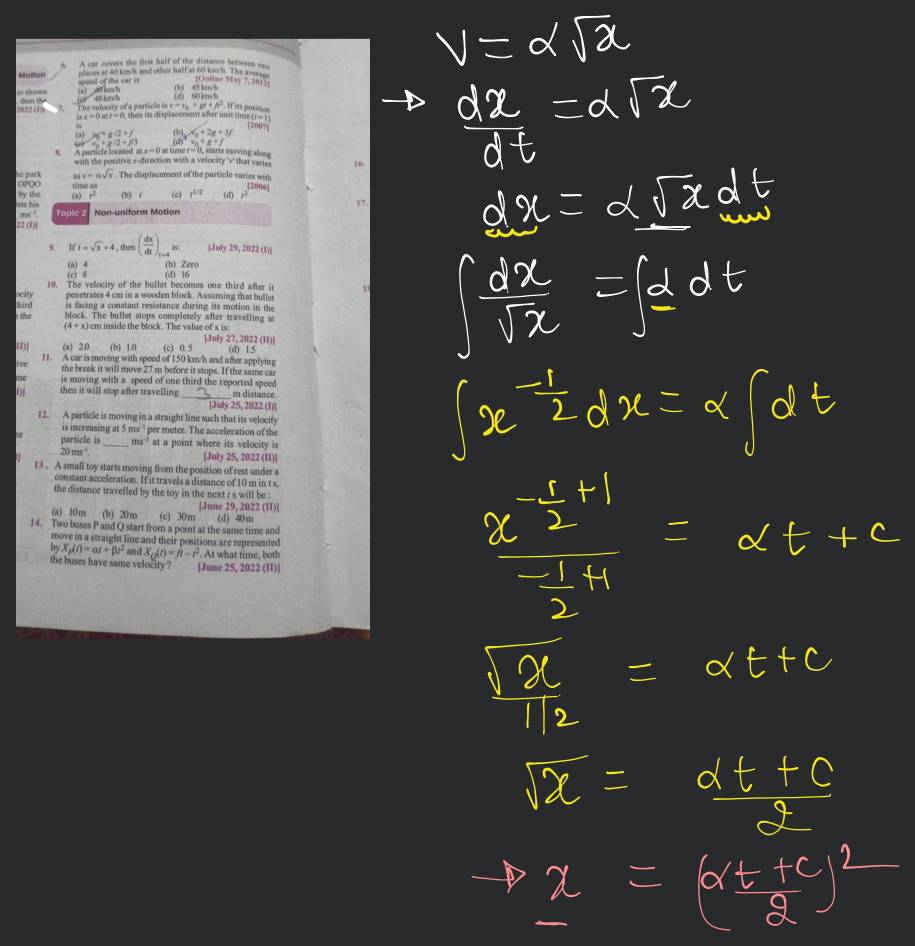 6. A car covers the first half of the distance between two
places at 40 km/h and other half at 60 km/h. The average
speed of the car is [Online May 7, 2012]
(a) 40 km/h (b) 45 km/h
(c) 48 km/h (d) 60 km/h
7. The velocity of a particle is v = v₀ + gt + ft². If its position
is x = 0 at t = 0, then its displacement after unit time (t = 1)
is [2007]
(a) v₀ + g/2 + f (b) v₀ + 2g + 3f
(c) v₀ + g/2 + f/3 (d) v₀ + g + f
8. A particle located at x = 0 at time t = 0, starts moving along
with the positive x-direction with a velocity 'v' that varies
as v = α√x. The displacement of the particle varies with
time as [2006]
(a) t² (b) t (c) t^1/2 (d) t³
Topic 2 Non-uniform Motion
9. If t = √x + 4, then (dx/dt)t=4 is: [July 29, 2022 (I)]
(a) 4 (b) Zero
(c) 8 (d) 16
10. The velocity of the bullet becomes one third after it
penetrates 4 cm in a wooden block. Assuming that bullet
is facing a constant resistance during its motion in the
block. The bullet stops completely after travelling at
(4 + x) cm inside the block. The value of x is:
[July 27, 2022 (II)]
(a) 2.0 (b) 1.0 (c) 0.5 (d) 1.5
11. A car is moving with speed of 150 km/h and after applying
the break it will move 27 m before it stops. If the same car
is moving with a speed of one third the reported speed
then it will stop after travelling 3 m distance.
[July 25, 2022 (I)]
12. A particle is moving in a straight line such that its velocity
is increasing at 5 ms⁻¹ per meter. The acceleration of the
particle is ____ ms⁻² at a point where its velocity is
20 ms⁻¹. [July 25, 2022 (II)]
13. A small toy starts moving from the position of rest under a
constant acceleration. If it travels a distance of 10 m in t s,
the distance travelled by the toy in the next t s will be:
[June 29, 2022 (II)]
(a) 10m (b) 20m (c) 30m (d) 40m
14. Two buses P and Q start from a point at the same time and
move in a straight line and their positions are represented
by Xₚ(t) = αt + βt² and X_Q(t) = ft – t². At what time, both
the buses have same velocity? [June 25, 2022 (II)]
Motion
as shown
, then the
2022 (I)]
he park
OPQO
by the
lete his
ms⁻¹.
22 (I)]
ocity
third
s the
II)]
ive
me
I)]
16.
17.
V = α√x
→ dx/dt = α√x
dx = α√x dt
∫ dx/√x = ∫ α dt
∫ x^(-1/2) dx = α ∫ dt
x^(-1/2+1) / (-1/2+1) = αt + c
√x / 1/2 = αt + c
√x = (αt + c)/2
→ x = ((αt + c)/2)²